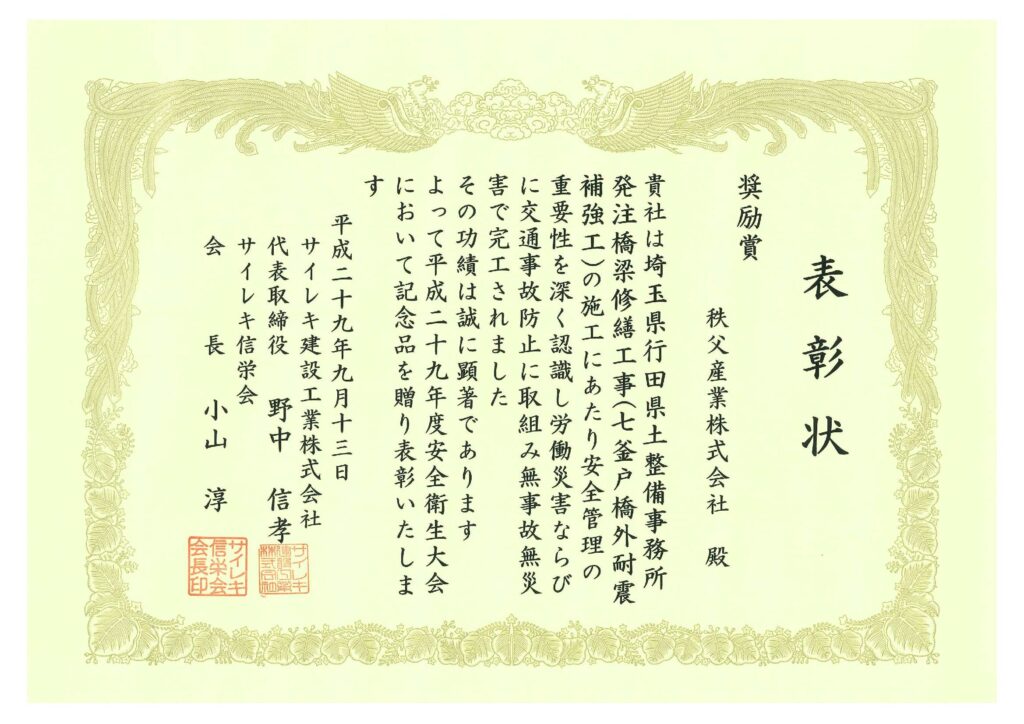 表彰状
奨励賞
秩父産業株式会社 殿
貴社は埼玉県行田県土整備事務所
発注橋梁修繕工事(七釜戸橋外耐震
補強工)の施工にあたり安全管理の
重要性を深く認識し労働災害ならび
に交通事故防止に取組み無事故無災
害で完工されました
その功績は誠に顕著であります
よって平成二十九年度安全衛生大会
において記念品を贈り表彰いたしま
す
平成二十九年九月十三日
サイレキ建設工業株式会社
代表取締役 野中 信孝
サイレキ信栄会
会長 小山 淳
サイレキ
信栄会
会長印